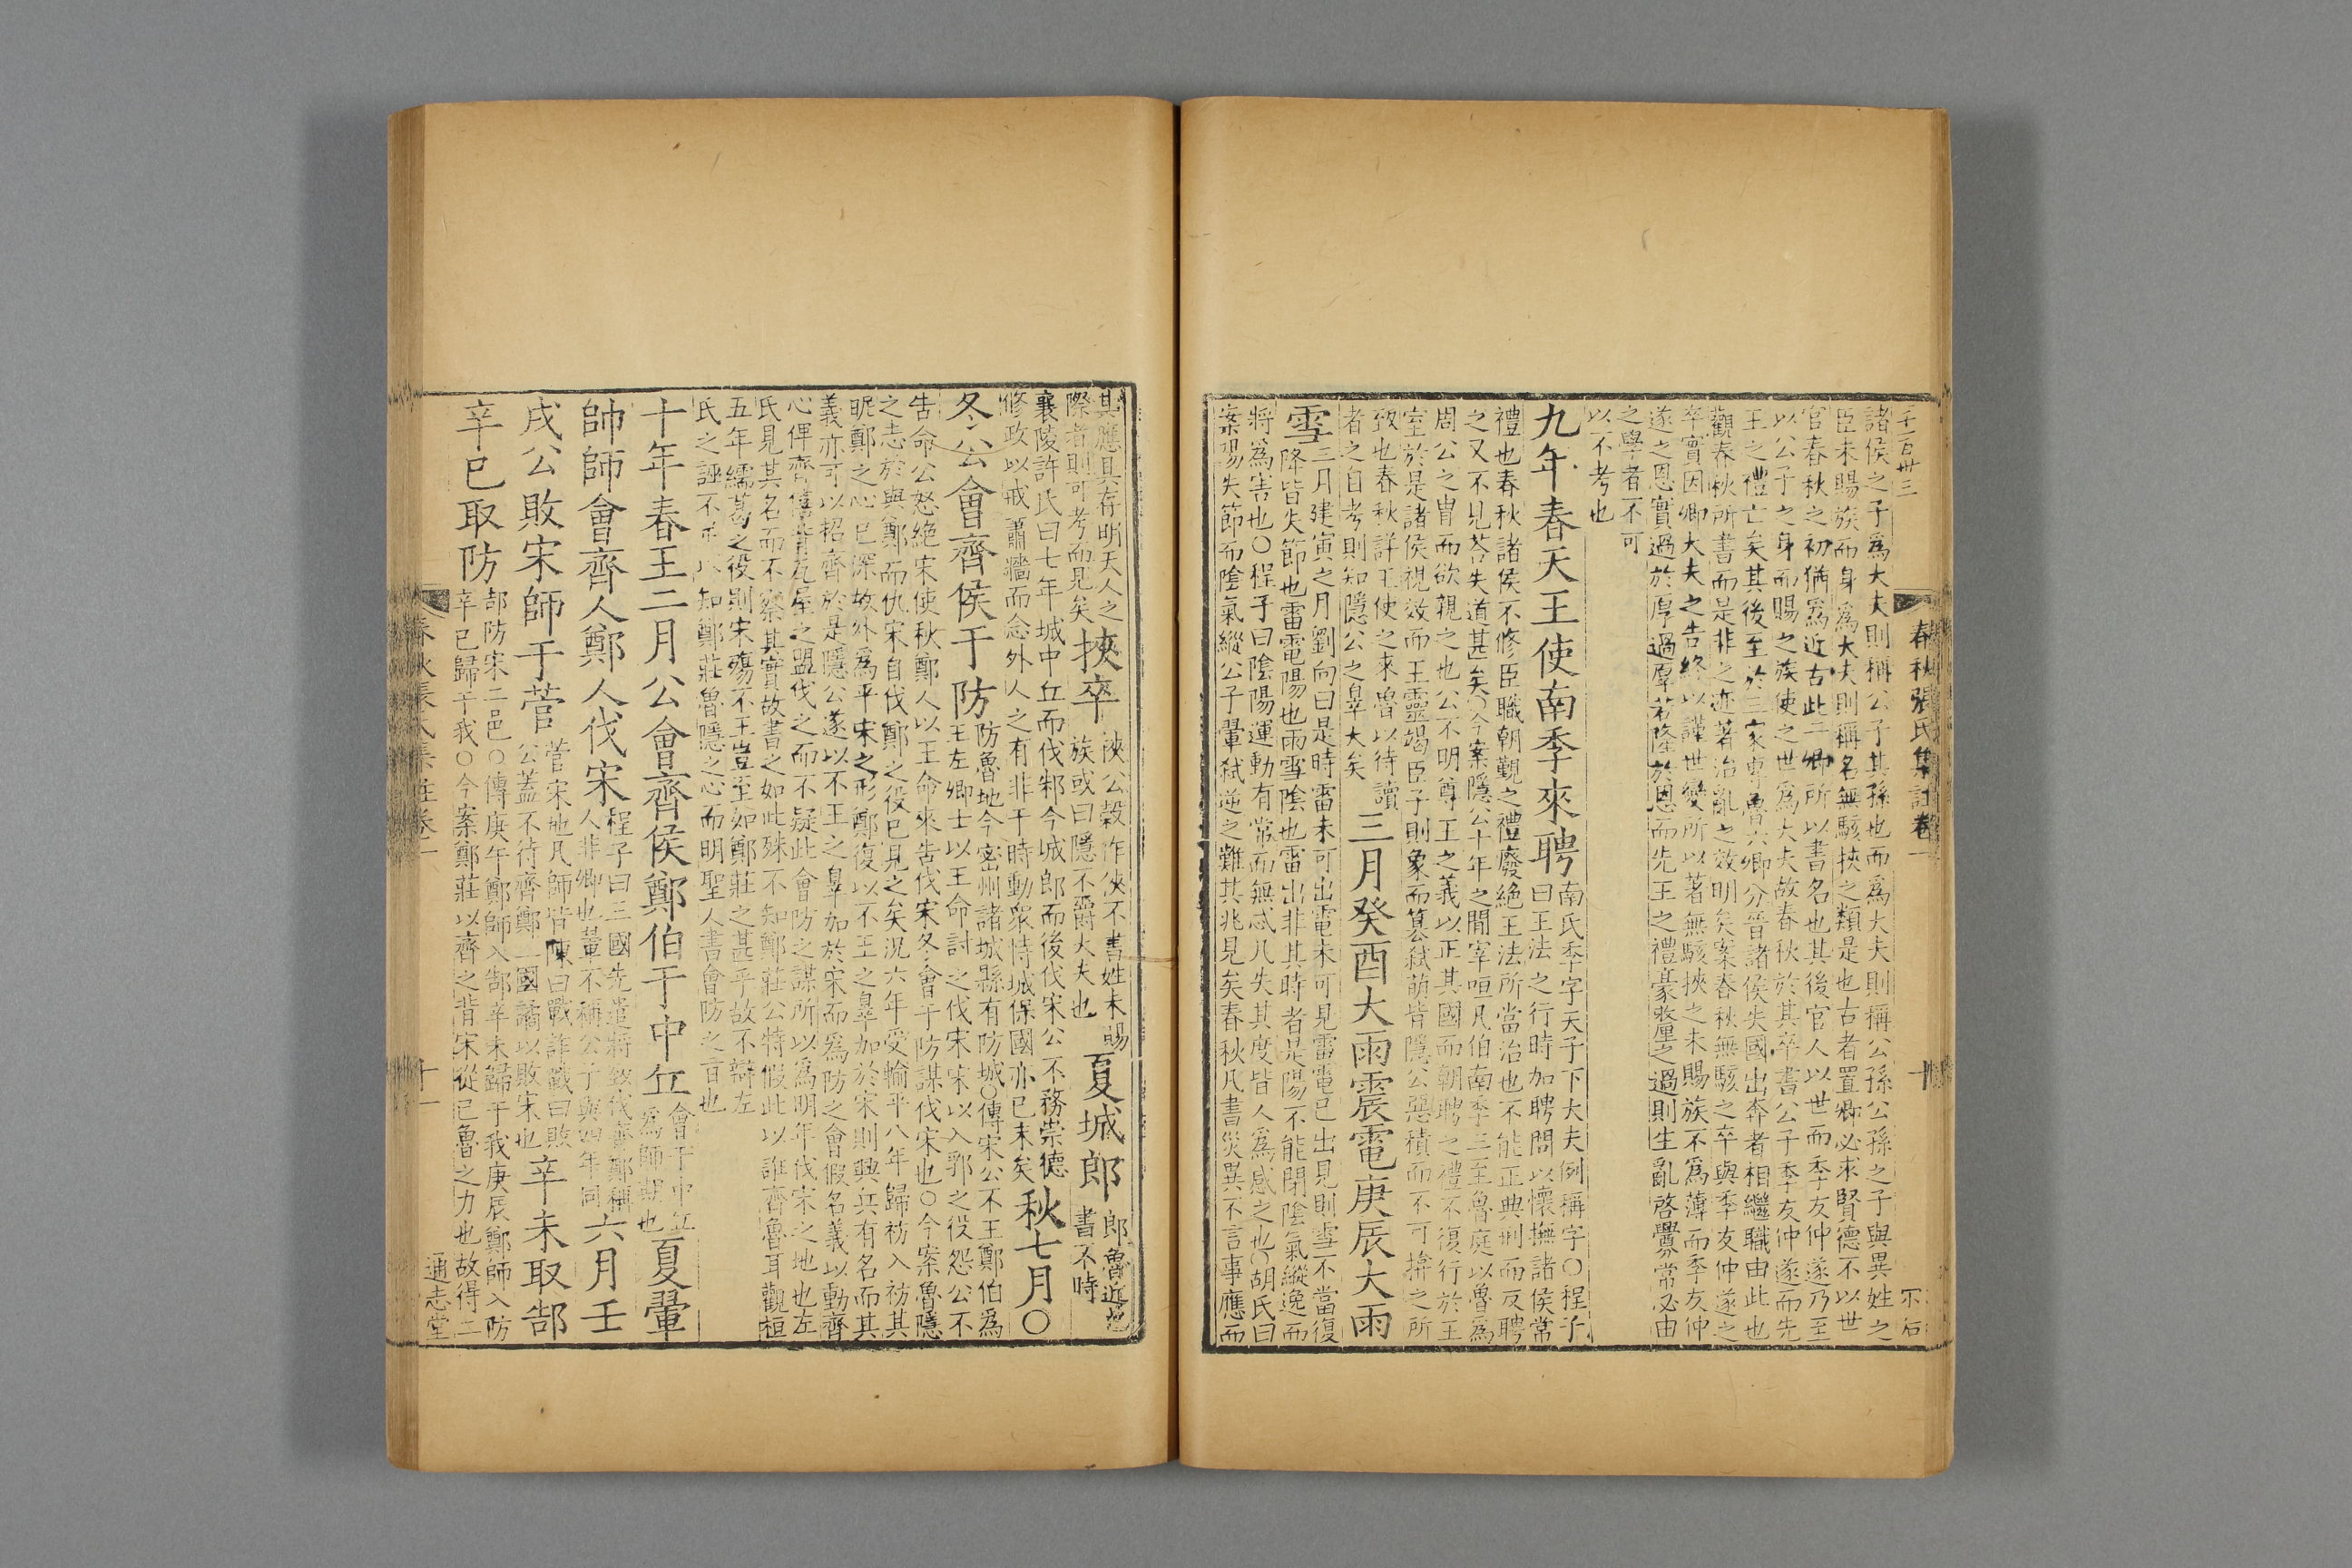 諸侯之子爲大夫則稱公子其孫也而爲大夫則稱公孫公孫之子與異姓之
臣未賜族而身爲大夫則稱名無駭挾之類是也古者置卿必求賢德不以世
官春秋之初猶爲近古此二卿所以書名也其後官人以世而季友仲遂乃至
以公子之身而賜之族使之世爲大夫故春秋於其卒書公子季友仲遂而先
王之禮亡矣其後至於三家專魯六卿分晉諸侯失國出奔者相繼職由此也
觀春秋所書而是非之迹著治亂之效明矣案春秋無駭之卒與季友仲遂之
卒實因卿大夫之告終以謹世變所以著無駭挾之未賜族不爲薄而季友仲
遂之恩實過於厚過厚若隆於恩而先王之禮豪釐之過則生亂啓釁常必由
之學者不可
以不考也
九年春天王使南季來聘
南氏季字天子下大夫例稱字○程子
曰王法之行時加聘問以懷撫諸侯常
禮也春秋諸侯不修臣職朝覲之禮廢絕王法所當治也不能正典刑而反聘
之又不見荅失道甚矣○今案隱公十年之間宰咺凡伯南季三至魯庭以魯爲
周公之冑而欲親之也公不明尊王之義以正其國而朝聘之禮不復行於王
室於是諸侯視效而王靈竭臣子則象而簒弑萌皆隱公惡積而不可揜之所
致也春秋詳王使之來魯以待讀
者之自考則知隱公之辠大矣
三月癸酉大雨震電庚辰大雨
雪
三月建寅之月劉向曰是時雷未可出電未可見雷電已出見則雪不當復
降皆失節也雷電陽也雨雪陰也雷出非其時者是陽不能閉陰氣縱逸而
將爲害也○程子曰陰陽運動有常而無忒凡失其度皆人爲感之也○胡氏曰
案陽失節而陰氣縱公子翬弑逆之難其兆見矣春秋凡書災異不言事應而
春秋張氏集註卷一
十
其應具存明天人之
際者則可考而見矣
挾卒
挾公穀作俠不書姓未賜
族或曰隱不爵大夫也
夏城郎
郎魯近邑
書不時
襄陵許氏曰七年城中丘而伐邾今城郎而後伐宋公不務崇德
修政以戒蕭牆而念外人之有非于時動衆恃城保國亦已末矣
秋七月○
冬公會齊侯于防
防魯地今密州諸城縣有防城○傳宋公不王鄭伯爲
王左卿士以王命討之伐宋宋以入郛之役怨公不
告命公怒絕宋使秋鄭人以王命來告伐宋冬會于防謀伐宋也○今案魯隱
之志於與鄭而仇宋自伐鄭之役已見之矣況六年受輸平八年歸祊入祊其
昵鄭之心已深故外爲平宋之形鄭復以不王之辠加於宋則興兵有名而其
義亦可以招齊於是隱公遂以不王之辠加於宋而爲防之會假名義以動齊
心俾齊僖背瓦屋之盟伐之而不疑此會防之謀所以爲明年伐宋之地也左
氏見其名而不察其實故書之如此殊不知鄭莊公特假此以誑齊魯耳觀桓
五年繻葛之役則宋殤不王豈至如鄭莊之甚乎故不辯左
氏之誣不知鄭莊魯隱之心而明聖人書會防之旨也
十年春王二月公會齊侯鄭伯于中丘
會于中丘
爲師期也
夏翬
帥師會齊人鄭人伐宋
程子曰三國先遣將致伐齊鄭稱
人非卿也翬不稱公子與四年同
六月壬
戌公敗宋師于菅
菅宋地凡師皆陳曰戰詐戰曰敗
公蓋不待齊鄭二國譎以敗宋也
辛未取郜
辛巳取防
郜防宋二邑○傳庚午鄭師入郜辛未歸于我庚辰鄭師入防
辛巳歸于我○今案鄭莊以齊之背宋從已魯之力也故得二
春秋張氏集註卷一
十一
通志堂